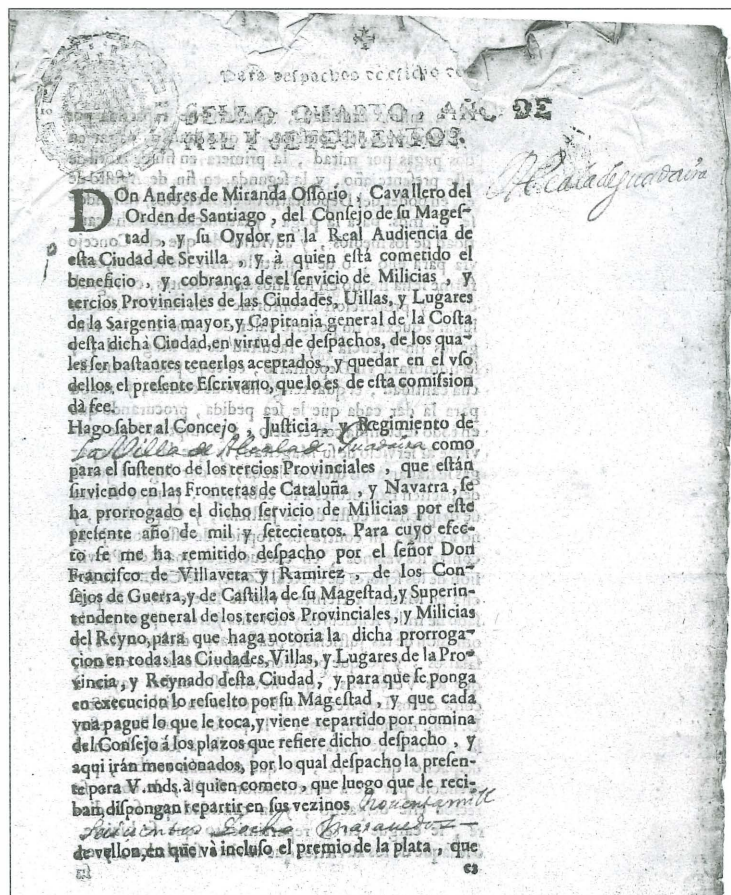 Para despachos de oficio
SELLO QUARTO, AÑO DE
MIL Y SETECIENTOS.
Alcala de guadaira
DOn Andres de Miranda Ossorio, Cavallero del
Orden de Santiago, del Consejo de su Mages-
tad, y su Oydor en la Real Audiencia de
esta Ciudad de Sevilla, y à quien està cometido el
beneficio, y cobrança de el servicio de Milicias, y
tercios Provinciales de las Ciudades, Uillas, y Lugares
de la Sargentia mayor, y Capitania general de la Costa
desta dicha Ciudad, en virtud de despachos, de los qua-
les ser bastantes tenerlos aceptados, y quedar en el vso
dellos, el presente Escrivano, que lo es de esta comission
dà fee.
Hago saber al Concejo, Justicia, y Regimiento de
La Villa de Alcala de Guadaira como
para el sustento de los tercios Provinciales, que estàn
sirviendo en las Fronteras de Cataluña, y Navarra, se
ha prorrogado el dicho servicio de Milicias por este
presente año de mil y setecientos. Para cuyo efec-
to se me ha remitido despacho por el señor Don
Francisco de Villaveta y Ramirèz, de los Con-
sejos de Guerra, y de Castilla de su Magestad, y Superin-
tendente general de los tercios Provinciales, y Milicias
del Reyno, para que haga notoria la dicha prorroga-
cion en todas las Ciudades, Villas, y Lugares de la Pro-
vincia, y Reynado desta Ciudad, y para que se ponga
en execucion lo resuelto por su Magestad, y que cada
vna pague lo que le toca, y viene repartido por nomina
del Consejo á los plazos que refiere dicho despacho, y
aqui iràn mencionados, por lo qual despacho la presen-
te para V.mds. à quien cometo, que luego que le reci-
ban, dispongan repartir en sus vezinos noventa mill
seiscientos y ocho maravedis
de vellon, en que và incluso el premio de la plata, que